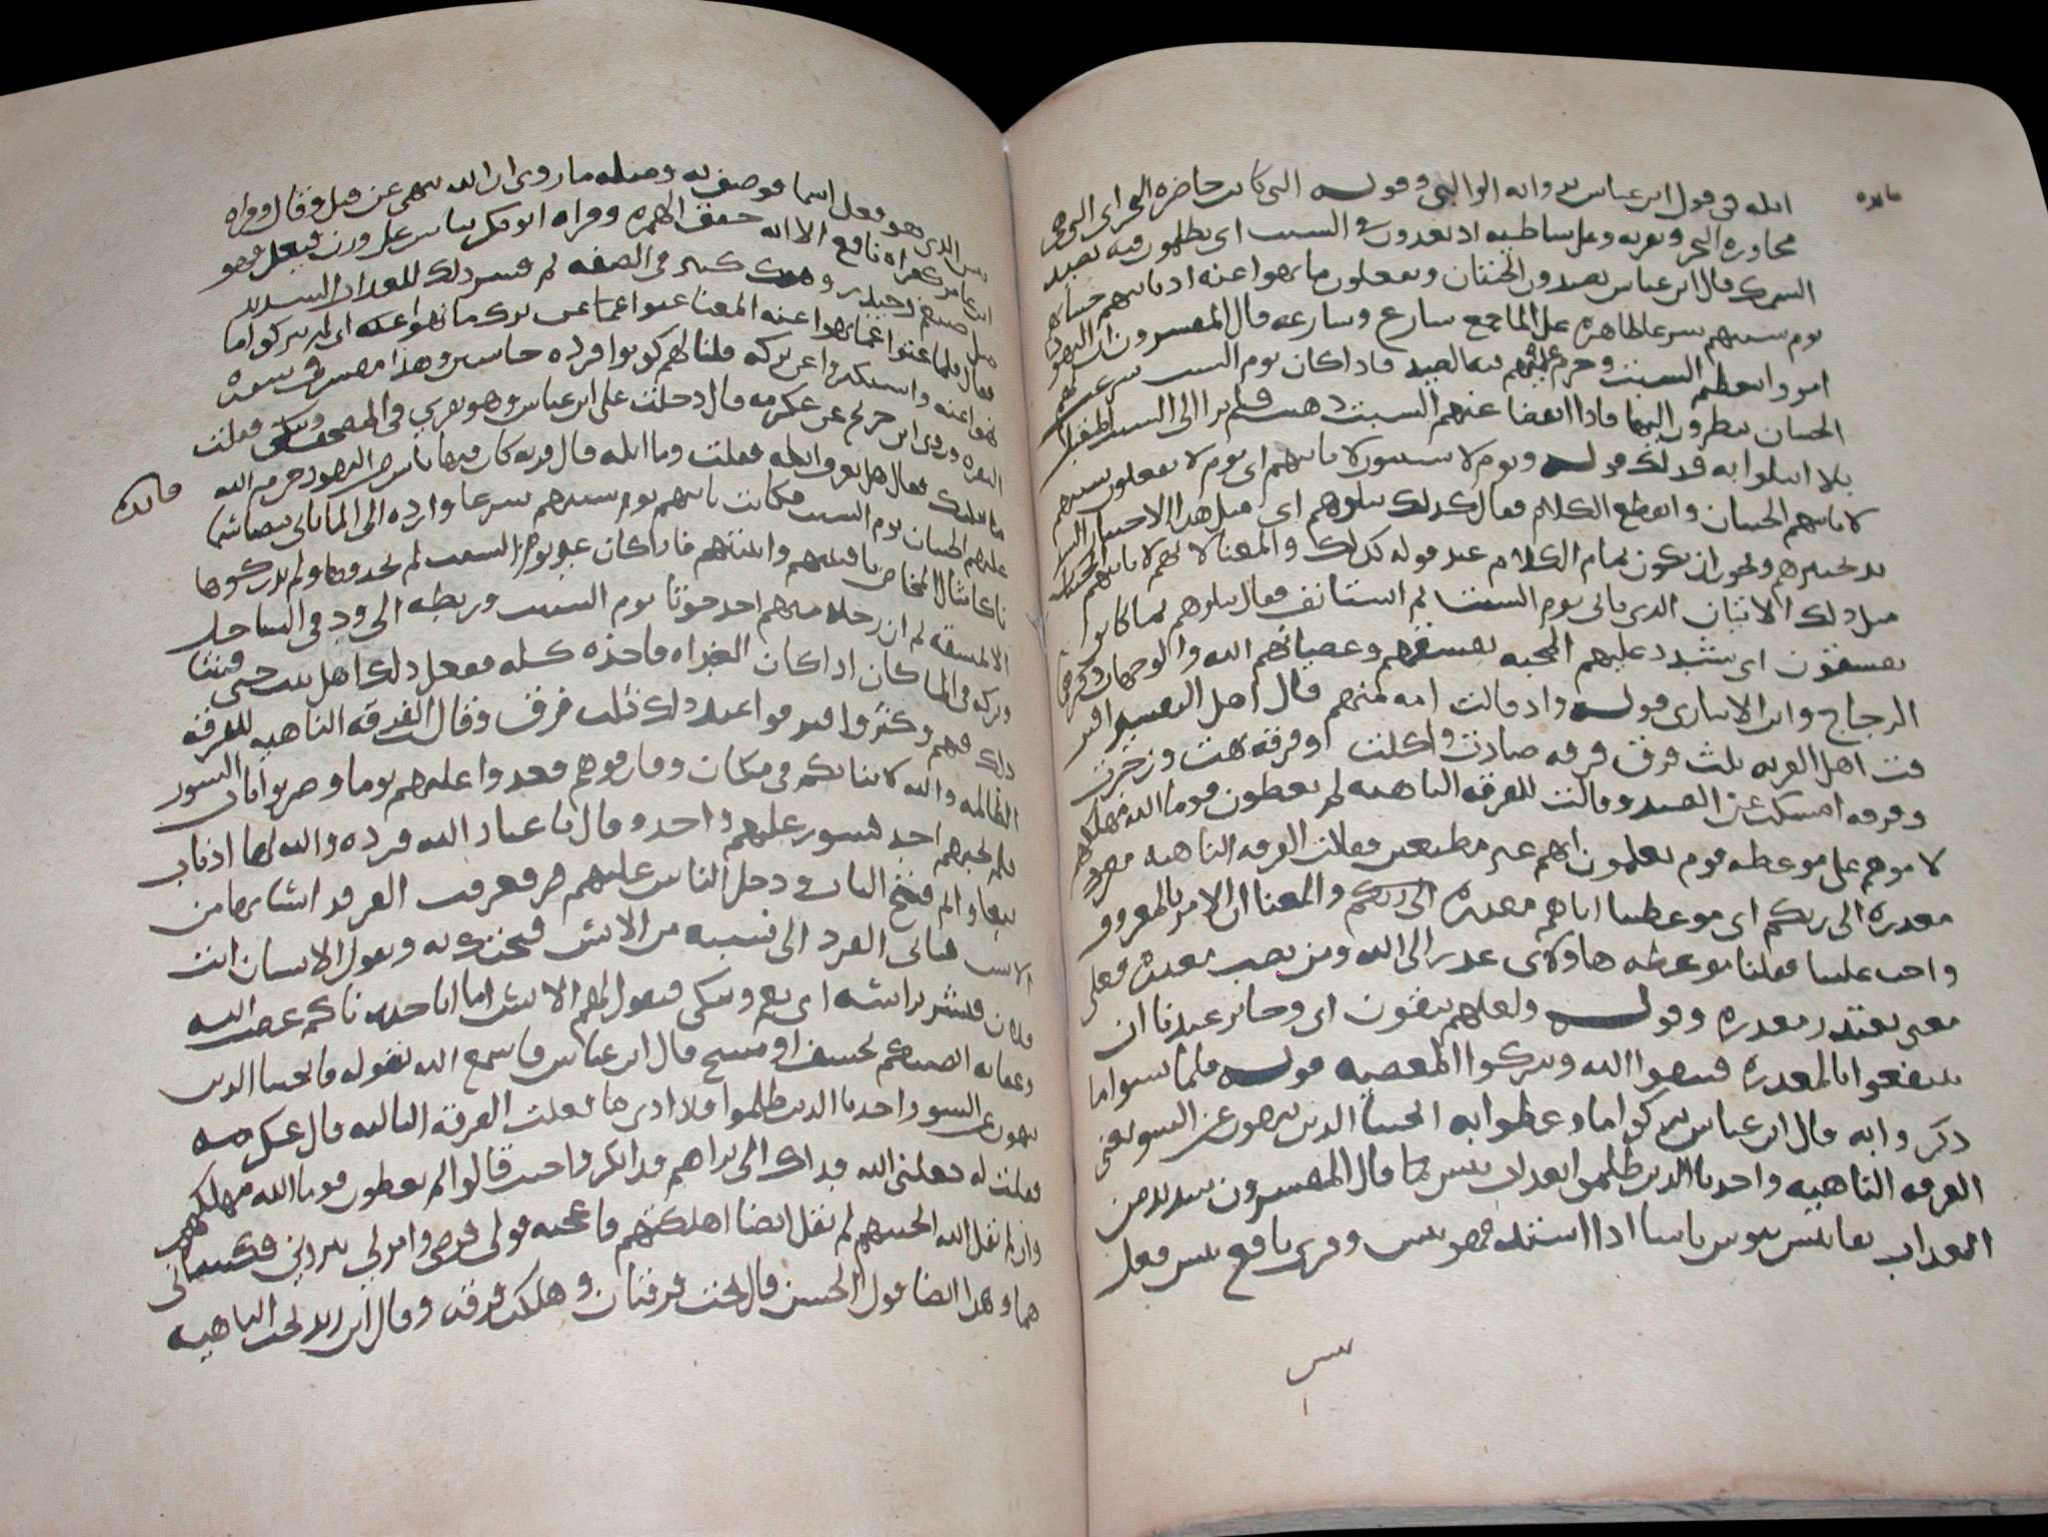 مايده
ايله في قول ابن عباس في رواية الوالبي وقوله التي كانت حاضرة البحر اي التي هي
مجاورة البحر وبقربه وعلى شاطيه اذ يعدون في السبت اي يظلمون فيه بصيد
السمك قال ابن عباس يصيدون الحيتان ويفعلون ما نهوا عنه اذ تاتيهم حيتانهم
يوم سبتهم شرعا ظاهرة على الما جمع شارع وشارعه قال المفسرون ان اليهود
امروا بتعظيم السبت وحرم عليهم فيه الصيد فاذا كان يوم السبت شرعت لهم
الحيتان ينظرون اليها فاذا انقضا عنهم السبت ذهبت فلم ترا الى السبت المقبل
بلا ابتلوا به فذلك قوله ويوم لا يسبتون لا تاتيهم اي يوم لا يفعلون سبتهم
لا تاتيهم الحيتان وانقطع الكلام فقال كذلك نبلوهم اي مثل هذا الاختبار
نختبرهم ويجوز ان يكون تمام الكلام عند قوله كذلك والمعنا لا تاتيهم
مثل ذلك الاتيان الذي ياتي يوم السبت ثم استانف فقال نبلوهم بما كانوا
يفسقون اي نشدد عليهم المحنه بفسقهم وعصيانهم الله والوجهان ذكرهما
الزجاج وابن الانباري قوله واذ قالت امه منهم قال اهل التفسير افتر
قت اهل القريه ثلث فرق فرقه صادت واكلت وفرقه نهت وزجرت
وفرقه امسكت عن الصيد وقالت للفرقه الناهيه لم تعظون قوما الله مهلكهم
لاموهم على موعظه قوم يعلمون انهم غير مقلعين فقالت الفرقه الناهيه
معذره الى ربكم اي موعظتنا اياهم معذره الى ربكم والمعنا ان الامر بالمعروف
واجب علينا فعلينا موعظه هاولاي عذرا الى الله ومن نصب معذره فعلى
معنى نعتذر معذره وقوله ولعلهم يتقون اي وجايز عندنا ان
ينتفعوا بالمعذره فيتقوا الله ويتركوا المعصيه قوله فلما نسوا ما
ذكروا به قال ابن عباس تركوا ما وعظوا به انجينا الذين ينهون عن السو يعني
الفرقه الناهيه واخذنا الذين ظلموا بعذاب بيس كما قال المفسرون شديد من
العذاب يقال بيس يبوس باسا اذا اشتد فهو بيس وقرى نافع بيس فعلى
بيس
بيس الذي هو فعل اسما فوصف به ومثله ما روى ان الله ينهى عن قيل وقال وقراه
ابن عامر كقراه نافع الا انه حقق الهمزه وقراه ابو بكر بياس على وزن فيعل فهو
مثل صيغم وحيدر وهذا كثير في الصفه ثم فسر ذلك العذاب الشديد
فقال فلما عتوا عما نهوا عنه المعنا عتوا عما عن ترك ما نهوا عنه اي لم يتركوا ما
نهوا عنه واستكبروا عن تركه قلنا لهم كونوا قرده خاسين وهذا مفسر في سوره
البقره وروى ابن جريج عن عكرمه قال دخلت على ابن عباس وهو يقري في المصحف ويبكي فقلت
ما يبكيك فقال هل تعرف ايله فقلت وما ايله قال قريه كان فيها ناس من اليهود حرم الله
مايده
عليهم الحيتان يوم السبت فكانت تاتيهم يوم سبتهم شرعا وارده الى الما بالى بيضا سمانا
كامثال المخاض بافنيتهم وابنيتهم فاذا كان غير يوم السبت لم يجدوها ولم يدركوها
الا بمشقه ثم ان رجلا منهم اخذ حوتا يوم السبت وربطه الى وتد في الساحل
وتركه في الما كان اذا كان الغد اه فاخذه كله ففعل ذلك اهل بيت حتى فشا
ذلك فيهم وكثروا فيه فواعد ذلك ثلث فرق وقال الفرقه الناهيه للفرقه
الظالمه والله لا نباتيكم في مكان وفارقوهم فغدوا عليهم يوما وضربوا باب السور
فلم يجبهم احد فتسور عليهم واحد وقال يا عباد الله قرده والله لها اذناب
تتعاوا ثم فتح الباب ودخل الناس عليهم فعرفت القرد انسابها من
الانس فياتي القرد الى نسيبه من الانس فيحتك به ويقول الانسان انت
فلان فيشير براسه اي نعم ويبكي فيقول لهم الانس اما انا حذرناكم غضب الله
وعقابه ان يصيبكم بخسف او مسخ قال ابن عباس فاسمع الله يقوله فانجينا الذين
ينهون عن السو واخذنا الذين ظلموا فلا ادري ما فعلت الفرقه الثالثه قال عكرمه
فقلت له جعلني الله فداك الا تراهم قد انكروا حيث قالوا لم تعظون قوما الله مهلكهم
وان لم يقل الله انجيتهم لم يقل ايضا اهلكتهم فاعجبه قولي فرضي وامر لي ببردين فكسانيه
هما وهذا ايضا قول الحسن قال نجت فرقتان وهلكت فرقه وقال ابن زيد نجت الناهيه